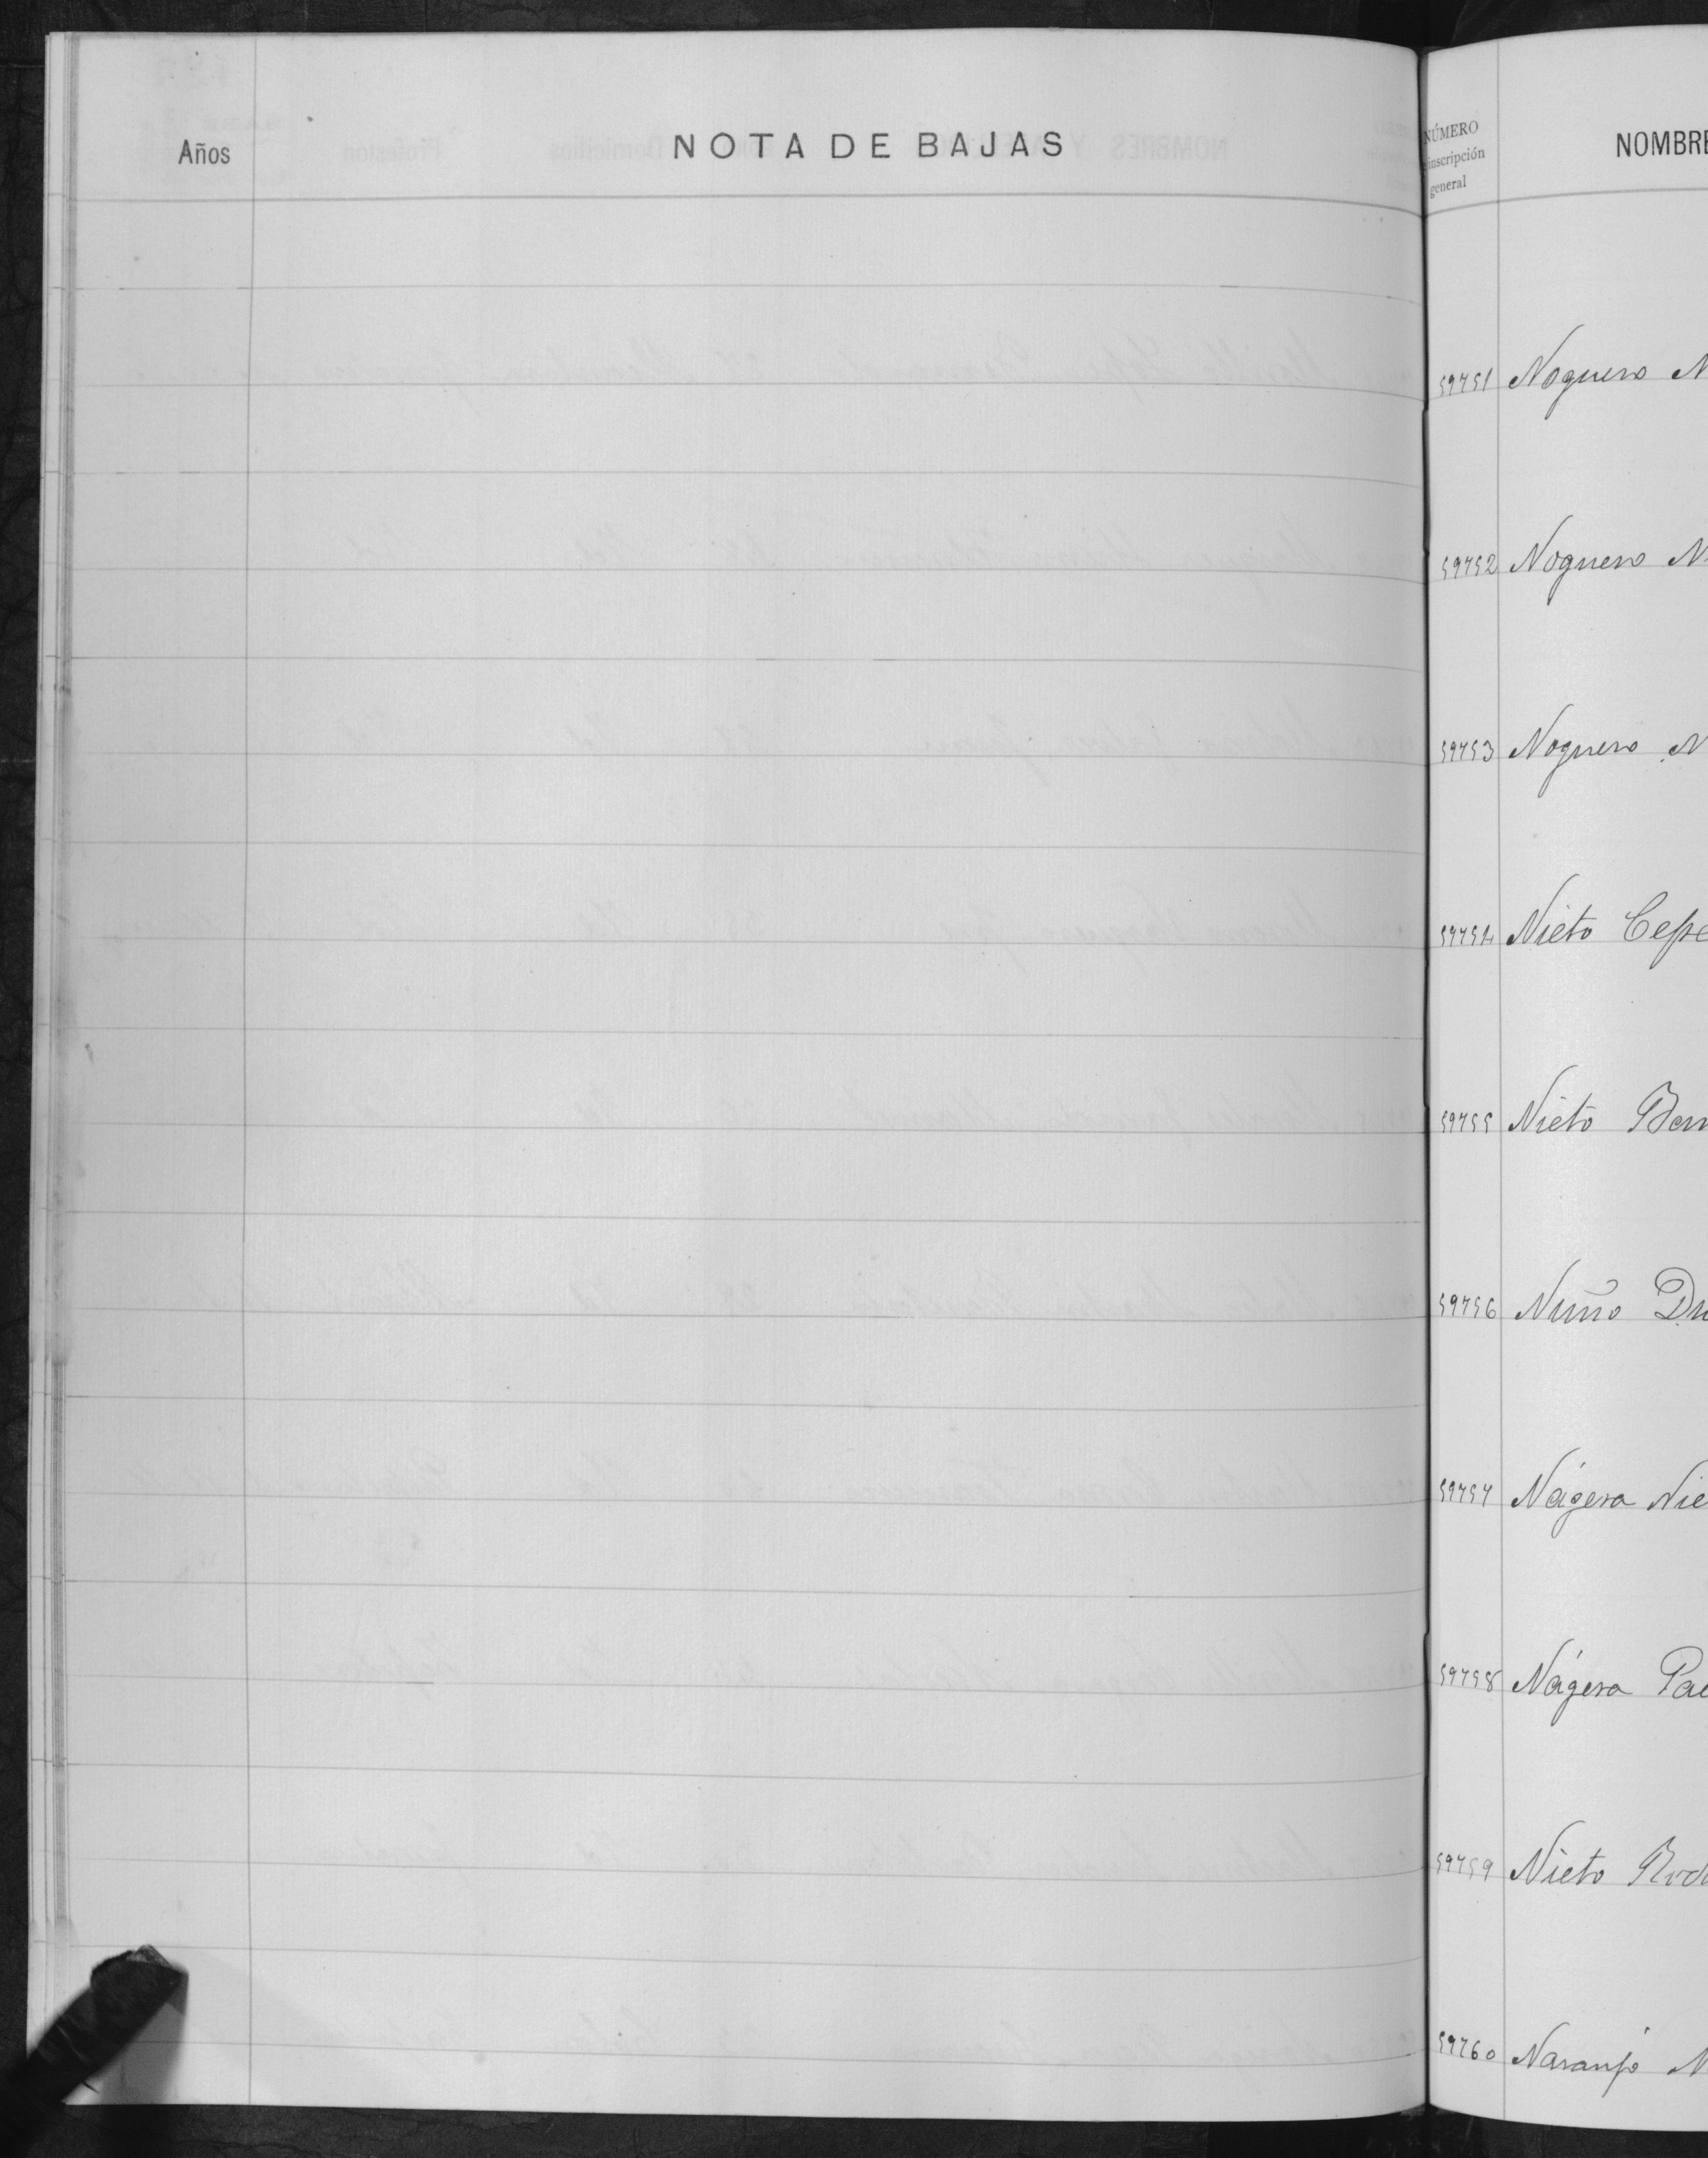 Años
NOTA DE BAJAS
NÚMERO
inscripción
general
NOMBRE
59751 Noguero N
59752 Noguero N
59753 Noguero N
59754 Nieto Cepe
59755 Nieto Ber
59756 Nuño Du
59757 Nágera Nie
59758 Nágera Pa
59759 Nieto Rod
59760 Naranjo N